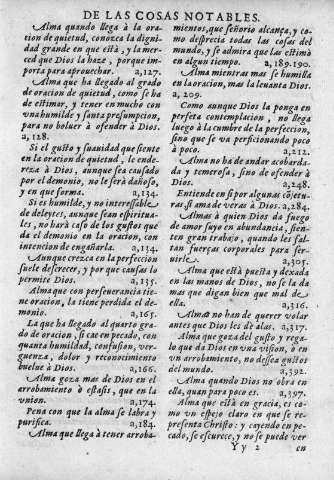 DE LAS COSAS NOTABLES.
Alma quando llega à la ora-
cion de quietud, conozca la digni-
dad grande en que està, y la mer-
ced que Dios la haze, porque im-
porta para aprouechar. a,127.
Alma que ha llegado al grado
de oracion de quietud, como se ha
de estimar, y tener en mucho con
vna humilde y santa presumpcion,
para no boluer à ofender à Dios.
a,128.
Si el gusto y suauidad que siente
en la oracion de quietud, le ende-
reza à Dios, aunque sea causado
por el demonio, no le será dañoso,
y en que forma. a,134.
Si es humilde, y no interessable
de deleytes, aunque sean espiritua-
les, no harà caso de los gustos que
dà el demonio en la oracion, con
intencion de engañarla.
a,134.
Aunque crezca en la perfeccion
suele descrecer, y por que causas lo
permite Dios. a,135.
Alma que con perseuerancia tie-
ne oracion, la tiene perdida el de-
monio. a,165.
La que ha llegado al quarto gra-
do de oracion, si cae en pecado, con
quanta humildad, confusion, ver-
guenza, dolor y reconocimiento
buelue à Dios. a,166.
Alma goza mas de Dios en el
arrobamiento ò estasis, que en la
vnion. a,174.
Pena con que la alma se labra y
purifica. a,184.
Alma que llega à tener arroba-
mientos, que señorio alcança, y co-
mo desprecia todas las cosas del
mundo, y se admira que las estimò
en algun tiempo. a,189.190.
Alma mientras mas se humilla
en la oracion, mas la leuanta Dios.
a,209.
Como aunque Dios la ponga en
perfeta contemplacion, no llega
luego à la cumbre de la perfeccion,
sino que se va perficionando poco
à poco. a,212.
Alma no ha de andar acobarda-
da y temerosa, sino de ofender à
Dios. a,248.
Entiende en si por algunas cõjetu-
ras, si ama de veras à Dios. a,284.
Almas à quien Dios da fuego
de amor suyo en abundancia, sien-
ten gran trabajo, quando les fal-
tan fuerças corporales para ser-
uirle. a,305.
Alma que està puesta y dexada
en las manos de Dios, no se la da
mas que digan bien que mal de
ella. a,316.
Almas no han de querer volar
antes que Dios les dè alas. a,317.
Alma que goza del gusto y rega-
lo que da Dios en vna vision, ò en
vn arrobamiento, no dessea gustos
del mundo. a,392.
Alma quando Dios no obra en
ella, quan para poco es. a,397.
Alma que està en gracia, es co-
mo vn espejo claro en que se re-
presenta Christo: y cayendo en pe-
cado, se escurece, y no se puede ver
Yy 2 en